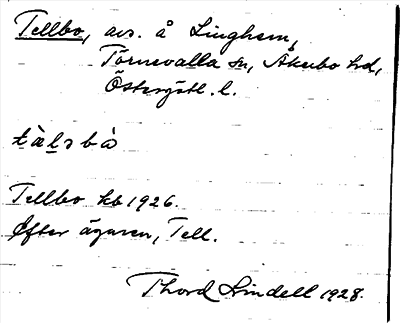 Tellbo, avs. å Linghem,
Törnevalla sn, Åkerbo hd,
Östergötl. l.
tὰlsbò
Tellbo kb 1926.
Efter ägaren, Tell.
Thord Lindell 1928.